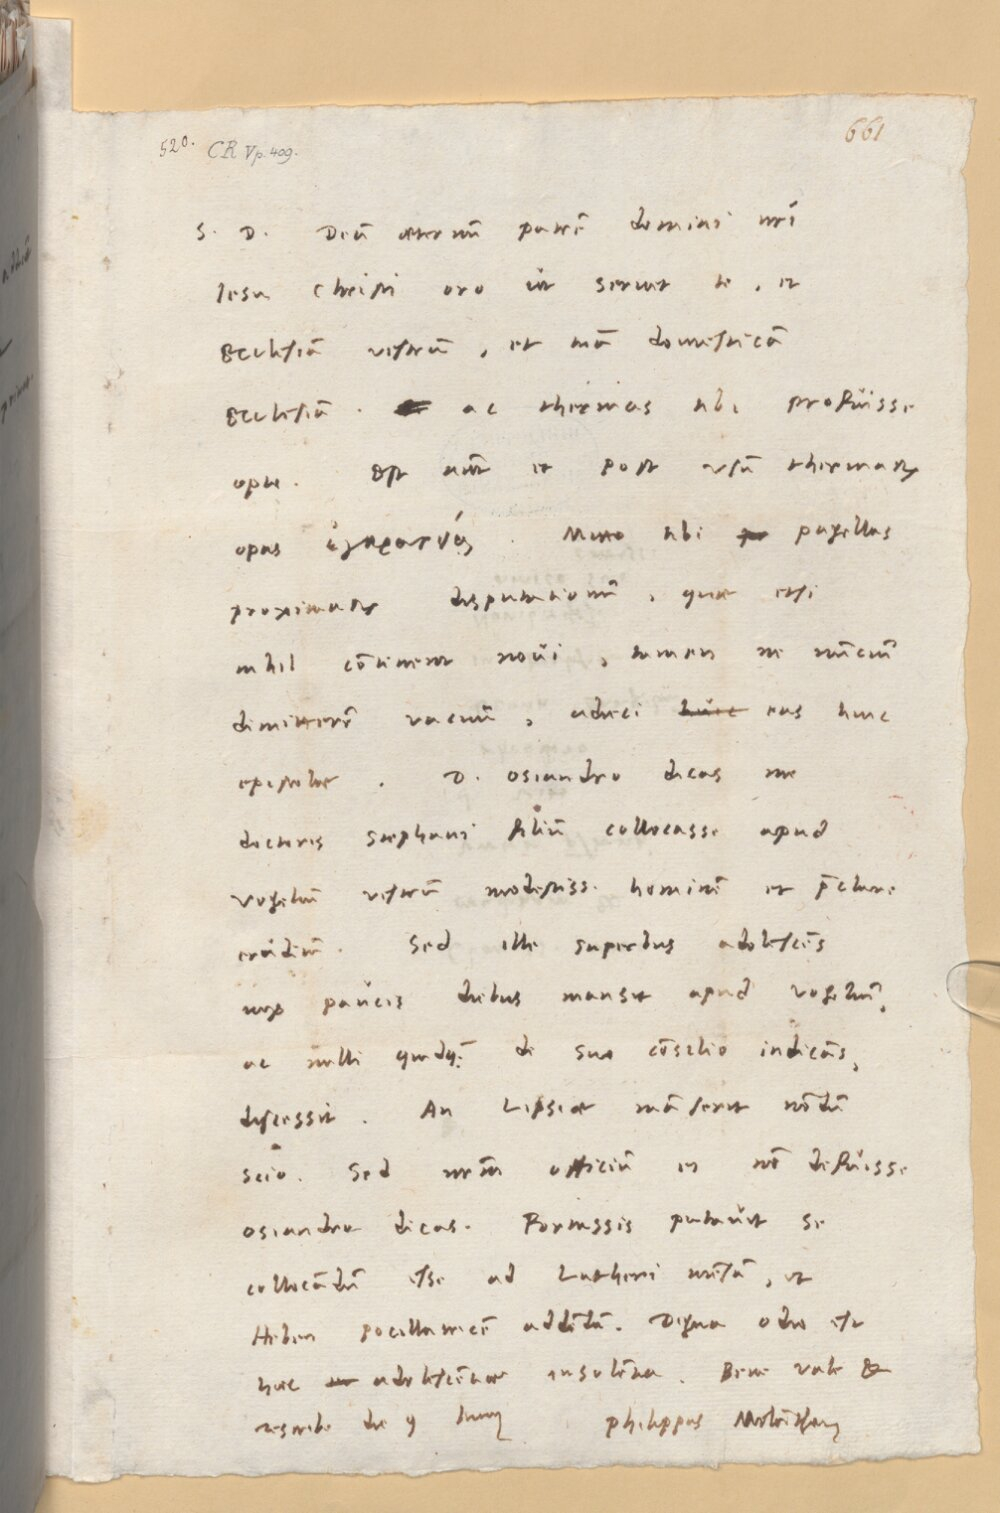 520. CR V p. 409.
661
S. D. Deū æternū patrē domini nrī
Iesu Christi oro ut servet te, et
Ecclesiā vestrā, et tuā domesticā
Ecclesiā. ac thermas tibi profuisse
opto. Est autē et post usū thermarū
opus
Mitto tibi pagellas
proximarū disputationū, quæ etsi
nihil cōtinent novi, tamen ne nunciū
dimitterē vacuū, adieci hūic eas huic
epistolæ. D. Osiandro dicas me
doctoris Stephani filiū collocasse apud
Vogeliū vestrū modestiss. hominē et p̄clare
erūditū. Sed ille superbus adolescēs
vix paucis diebus mansit apud Vogeliū,
ac nulli quidq̄ de suo cōsilio indicās,
discessit. An Lipsiæ māserit nōdū
scio. Sed meū officiū ei nō defuisse
Osiandro dicas. Fortassis putavit se
collocādū esse ad Lutheri mēsā, et
Heben pocillatricē addēdā. Digna odio est
hæc adolescētiæ insolētia. Bene vale &
rescribe die 9 Iunij Philippus Melāthon